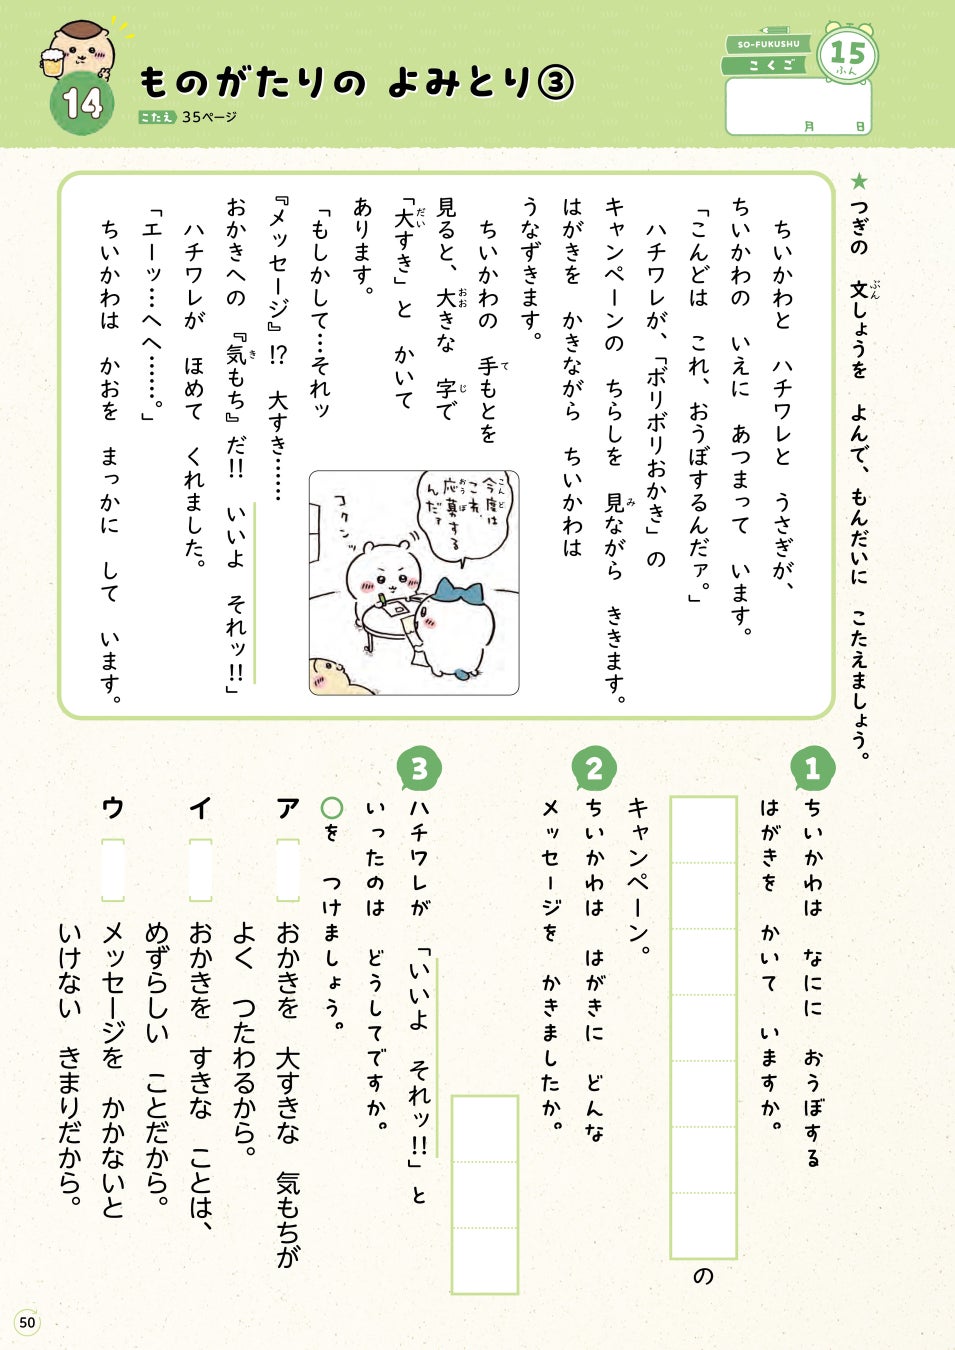 14
ものがたりの よみとり③
こたえ 35ページ
SO-FUKUSHU
こくご
15
ふん
月 日
★つぎの 文しょうを よんで、もんだいに こたえましょう。
ぶん
ちいかわと ハチワレと うさぎが、
ちいかわの いえに あつまって います。
「こんどは これ、おうぼするんだァ。」
ハチワレが、「ボリボリおかき」の
キャンペーンの ちらしを 見ながら ききます。
み
はがきを かきながら ちいかわは
うなずきます。
ちいかわの 手もとを
て
見ると、大きな 字で
おお じ
「大すき」と かいて
だい
あります。
「もしかして…それッ
『メッセージ』!? 大すき……
おかきへの 『気もち』だ!! いいよ それッ!!」
き
ハチワレが ほめて くれました。
「エーッ…へへ……。」
ちいかわは かおを まっかに して います。
今度は
こんど
これ、
応募する
おうぼ
んだァ
コクンッ
1 ちいかわは なにに おうぼする
はがきを かいて いますか。
の
キャンペーン。
2 ちいかわは はがきに どんな
メッセージを かきましたか。
3 ハチワレが 「いいよ それッ!!」と
いったのは どうしてですか。
○を つけましょう。
ア おかきを 大すきな 気もちが
よく つたわるから。
イ おかきを すきな ことは、
めずらしい ことだから。
ウ メッセージを かかないと
いけない きまりだから。
50